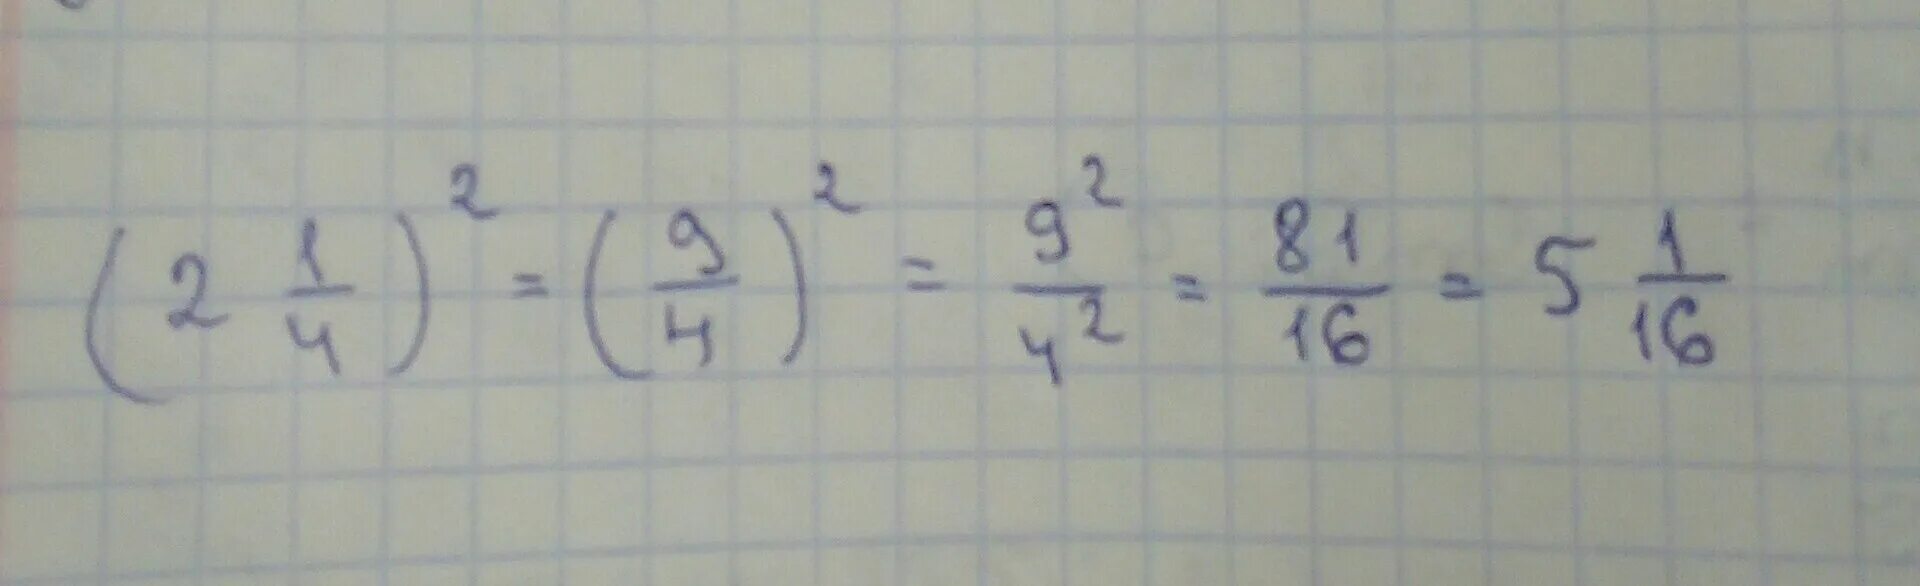 (2 1/4)² = (9/4)² = 9²/4² = 81/16 = 5 1/16